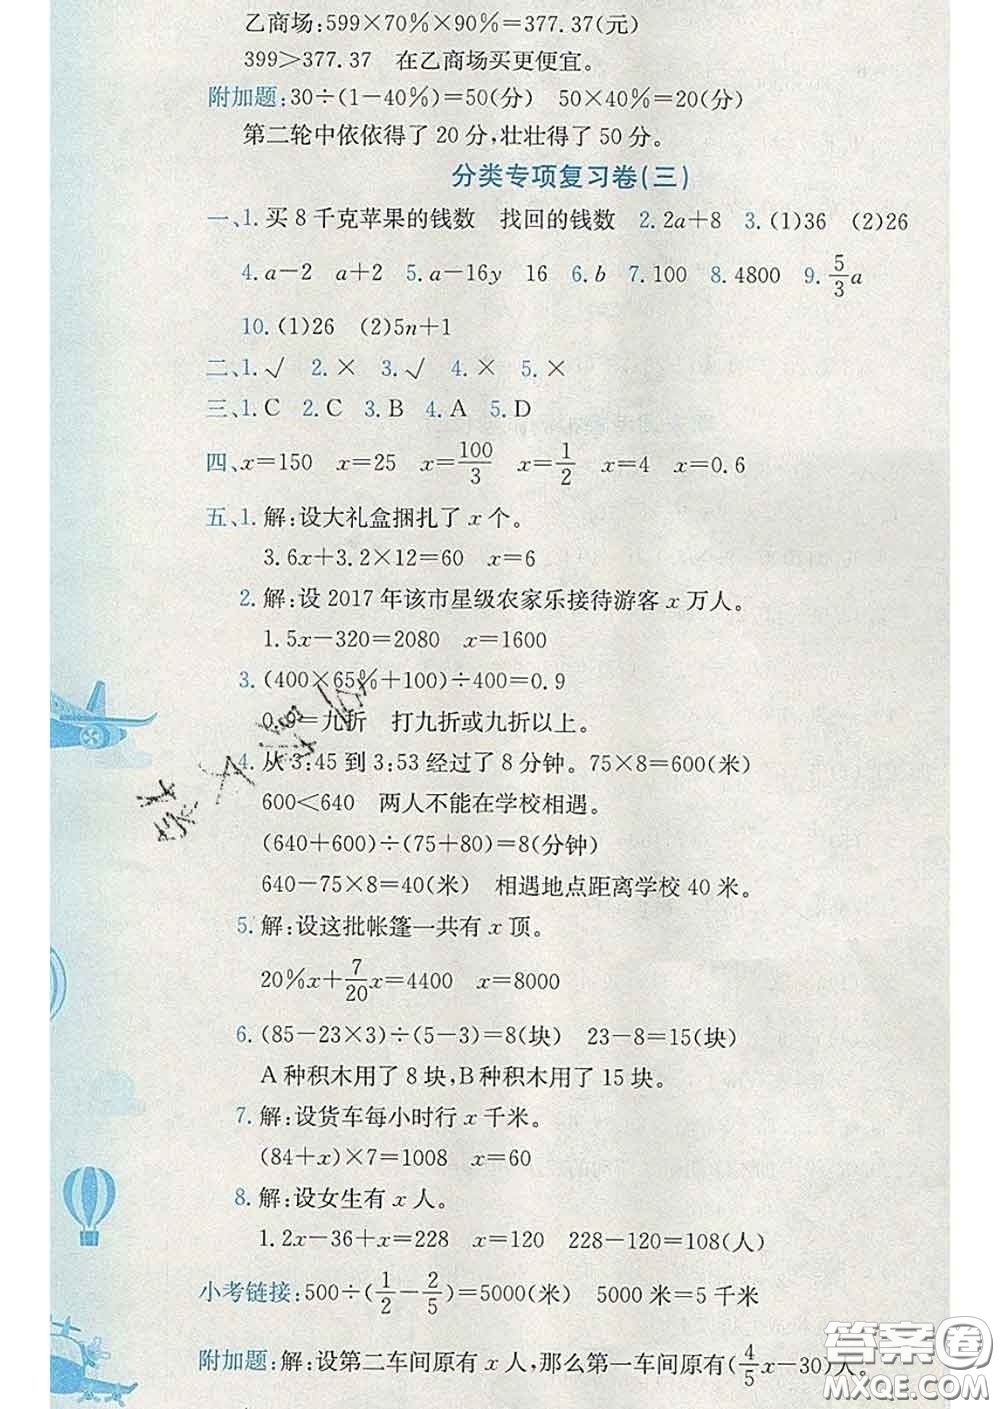 乙商场:599×70%×90%=377.37(元)
399>377.37 在乙商场买更便宜。
附加题:30÷(1-40%)=50(分) 50×40%=20(分)
第二轮中依依得了 20 分,壮壮得了 50 分。
分类专项复习卷(三)
一、1.买 8 千克苹果的钱数 找回的钱数 2.2a+8 3.(1)36 (2)26
4.a-2 a+2 5.a-16y 16 6.b 7.100 8.4800 9.5/3a
10.(1)26 (2)5n+1
二、1.√ 2.× 3.√ 4.× 5.×
三、1.C 2.C 3.B 4.A 5.D
四、x=150 x=25 x=100/3 x=1/2 x=4 x=0.6
五、1.解:设大礼盒捆扎了 x 个。
3.6x+3.2×12=60 x=6
2.解:设 2017 年该市星级农家乐接待游客 x 万人。
1.5x-320=2080 x=1600
3.(400×65%+100)÷400=0.9
=九折 打九折或九折以上。
4.从 3:45 到 3:53 经过了 8 分钟。75×8=600(米)
600<640 两人不能在学校相遇。
(640+600)÷(75+80)=8(分钟)
640-75×8=40(米) 相遇地点距离学校 40 米。
5.解:设这批帐篷一共有 x 顶。
20%x+7/20x=4400 x=8000
6.(85-23×3)÷(5-3)=8(块) 23-8=15(块)
A 种积木用了 8 块,B 种积木用了 15 块。
7.解:设货车每小时行 x 千米。
(84+x)×7=1008 x=60
8.解:设女生有 x 人。
1.2x-36+x=228 x=120 228-120=108(人)
小考链接:500÷(1/2-2/5)=5000(米) 5000 米=5 千米
附加题:解:设第二车间原有 x 人,那么第一车间原有(4/5x-30)人。
答案圈
MXQE.COM